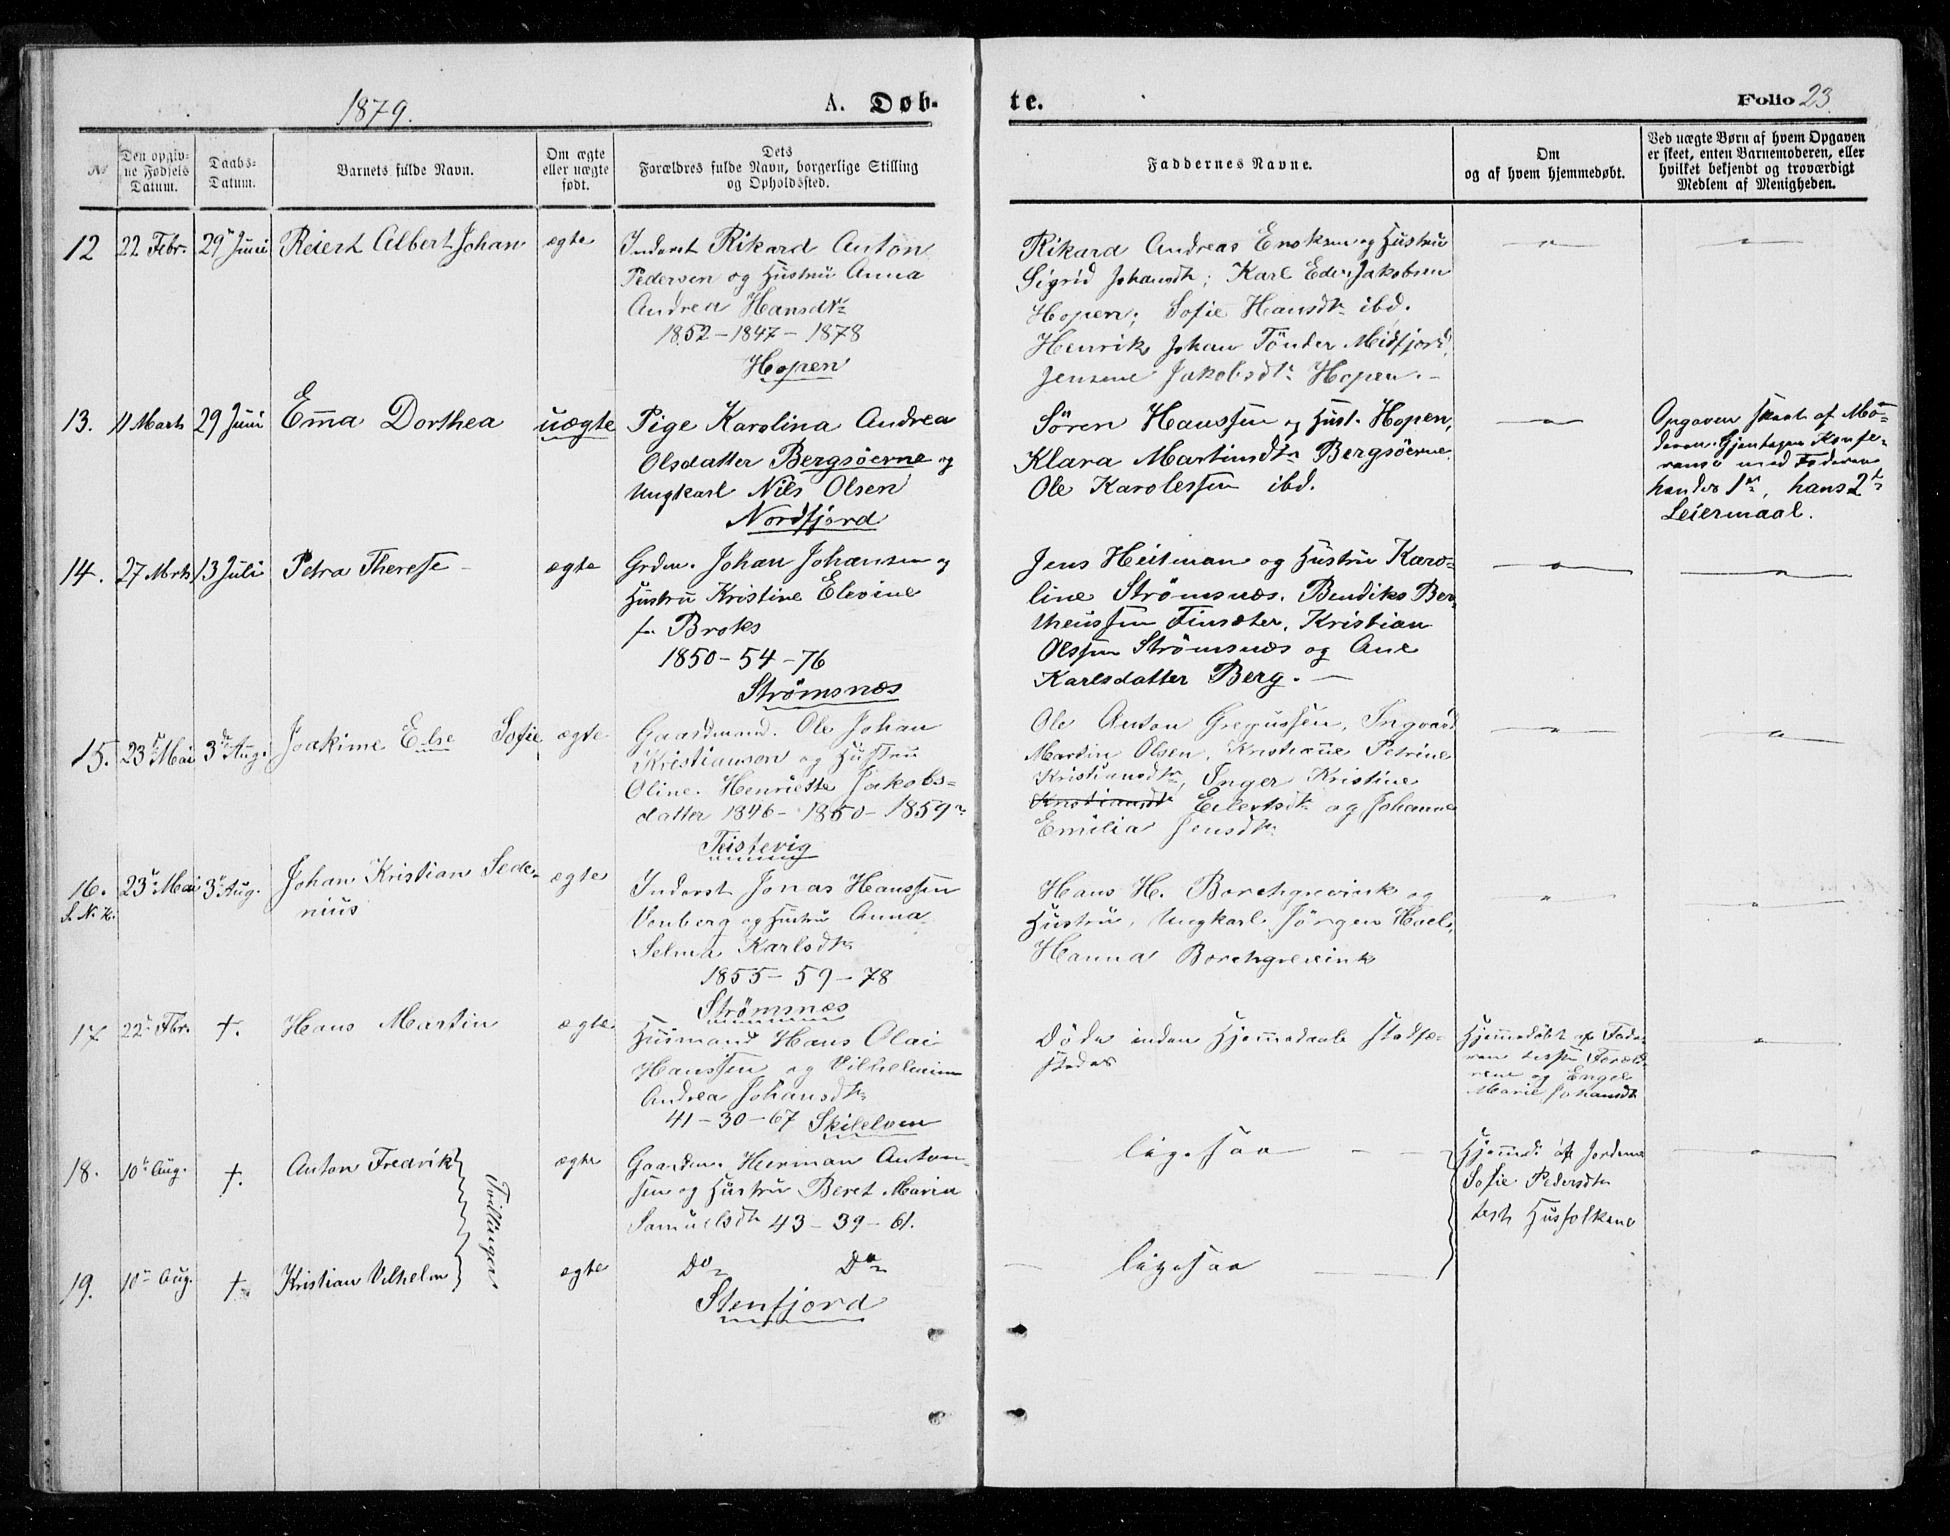 1879.
A. Døb-
te.
Folio 23.
No
Den opgiv-
ne Fødsels
Datum.
Daabs-
Datum.
Barnets fulde Navn.
Om ægte
eller uægte
født.
Dets
Forældres fulde Navn, borgerlige Stilling
og Opholdssted.
Faddernes Navne.
Om
og af hvem hjemmedøbt.
Ved uægte Børn af hvem Opgaven
er skeet, enten Barnemoderen, eller
hvilket bekjendt og troværdigt
Medlem af Menigheden.
12 22 Febr. 29 Juni Reiert Albert Johan ægte
Inderst Rikard Anton
Pedersen og Hustru Anna
Andrea Hansdtr
1852 - 1847 - 1878
Hopen
Rikard Andreas Enoksen og Hustru
Sigrid Johansdtr; Karl Eder Jakobsen
Hopen; Sofie Hansdtr ibd.
Henrik Johan Tönder Midfjord,
Jensine Jakobsdtr Hopen. -
13. 11 Marts 29 Juni Emma Dorthea uægte
Pige Karolina Andrea
Olsdatter Bergsöerne og
Ungkarl Nils Olsen
Nordfjord
Sören Hanssen og Hust. Hopen,
Klara Martinsdtr Bergsöerne.
Ole Karolessen ibd.
Opgaven skeet af Mo-
deren. Gjentagen Konfe-
ranse med Faderen
hendes 1ste, hans 2det
Leiermaal.
14. 27 Mrts 13 Juli Petra Therese - ægte
Grdm. Johan Johansen og
Hustru Kristine Elevine
f. Broks
1850 - 54 - 76
Strømsnæs
Jens Heitman og Hustru Karo-
line Strømsnæs. Bendiks Ber-
theussen Finsæter, Kristian
Olssen Strømsnæs og Ane
Karlsdatter Berg. -
15. 23de Mai 3de Aug. Joakime Else Sofie ægte
Gaardmand. Ole Johan
Kristiansen og Hustru
Oline Henriette Jakobs-
datter 1846 - 1850 - 1859
Teistevig
Ole Anton Gregussen, Ingvard
Martin Olsen, Kristianne Petrine
Kristiansdtr, Inger Kristine
Kristiansdtr Eilertsdtr og Johanne
Emilia Jensdtr
16. 23 Mai 3 Aug. Johan Kristian Sede-
nius ægte
S. N. K.
Inderst Jonas Hanssen
Vonberg og Hustru Anna
Selma Karlsdtr
1855 - 59 - 78
Strømnæs
Hans H. Borchgrevink og
Hustru, Ungkarl Jörgen Hoel,
Hanna Borchgrevink
17 22 Fbr. †. Hans Martin ægte
Husmand Hans Olai
Hanssen og Vilhelmine
Andrea Johansdtr
41 - 30 - 67 Skilelven
Döde inden Hjemmedaab stadfæ-
stedes
Hjemmedöbt af Fade-
ren testes Foræld-
rene og Engel
Marie Johansdtr
18. 10 Aug. †. Anton Fredrik ægte
Tvillinger
Gaardm. Herman Anton-
sen og Hustru Beret Maria
Samuelsdtr 43 - 39 - 61.
ligesaa
Hjemmd. af Jordem.
Sofie Pedersdtr
test. Husfolkene
19. 10 Aug. † Kristian Vilhelm ægte
Do Do
Stenfjord
ligesaa